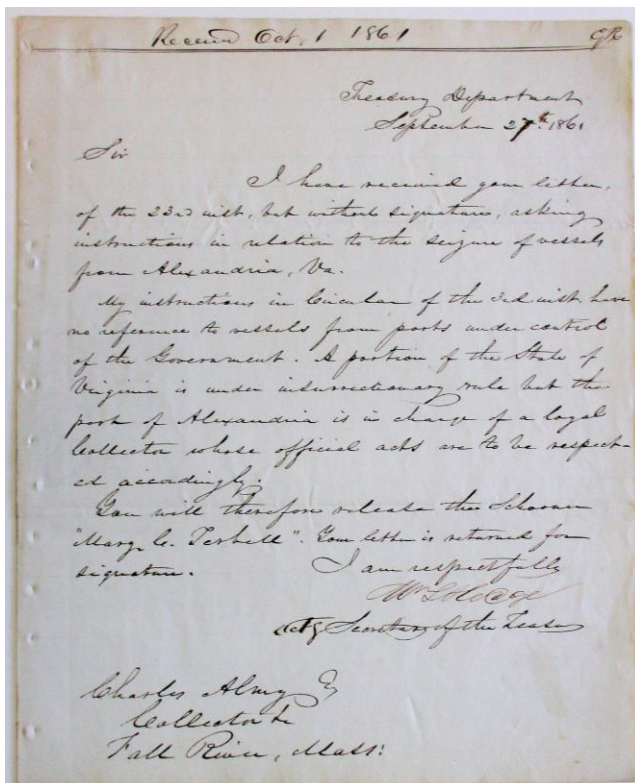 Received Oct. 1 1861
Treasury Department
September 27th. 1861
Sir
I have received your letter,
of the 23rd inst, but without signature, asking
instructions in relation to the seizure of vessels
from Alexandria, Va.
My instructions in Circular of the 3rd inst. have
no reference to vessels from ports under control
of the Government. A portion of the State of
Virginia is under insurrectionary rule but the
port of Alexandria is in charge of a loyal
Collector whose official acts are to be respect-
ed accordingly.
You will therefore release the Schooner
"Mary C. Terbell". Your letter is returned for
signature.
I am respectfully
Actg Secretary of the Treasy
Charles Almy Eq
Collector &c
Fall River, Mass: